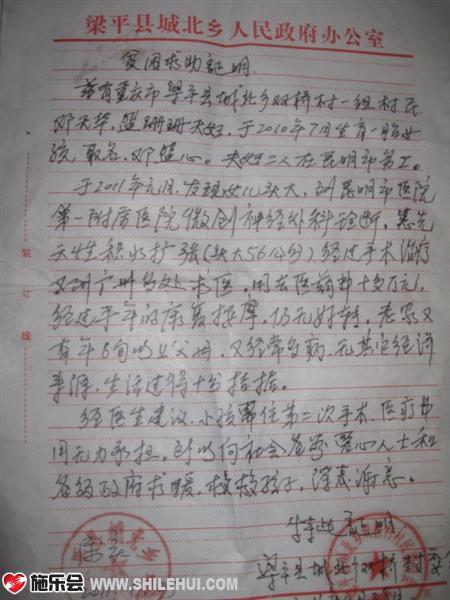 梁平县城北乡人民政府办公室
贫困求助证明
兹有重庆市梁平县城北乡双桥村一组村民
邓天华,蓝珊珊夫妇,于2010年7月生育一胎女
孩,取名邓蓝心。夫妇二人在昆明市务工。
于2011年元月,发现女儿头大,到昆明市医院
第一附属医院微创神经外科诊断,患先
天性积水扩张(头大56公分)经过手术治疗
又到广州多处求医,用去医药费十多万元,
经过半年的康复按摩,仍无好转,老家又
有年6旬的父母,又经常多病,无其它经济
来源,生活过得十分拮据。
经医生建议,小孩要住第二次手术,医疗费
用无力承担,到此向社会各家爱心人士和
各级政府求援,救救孩子,深表谢意。
特此证明
梁平县城北乡双桥村委会
装订线
施乐会 WWW.SHILEHUI.COM